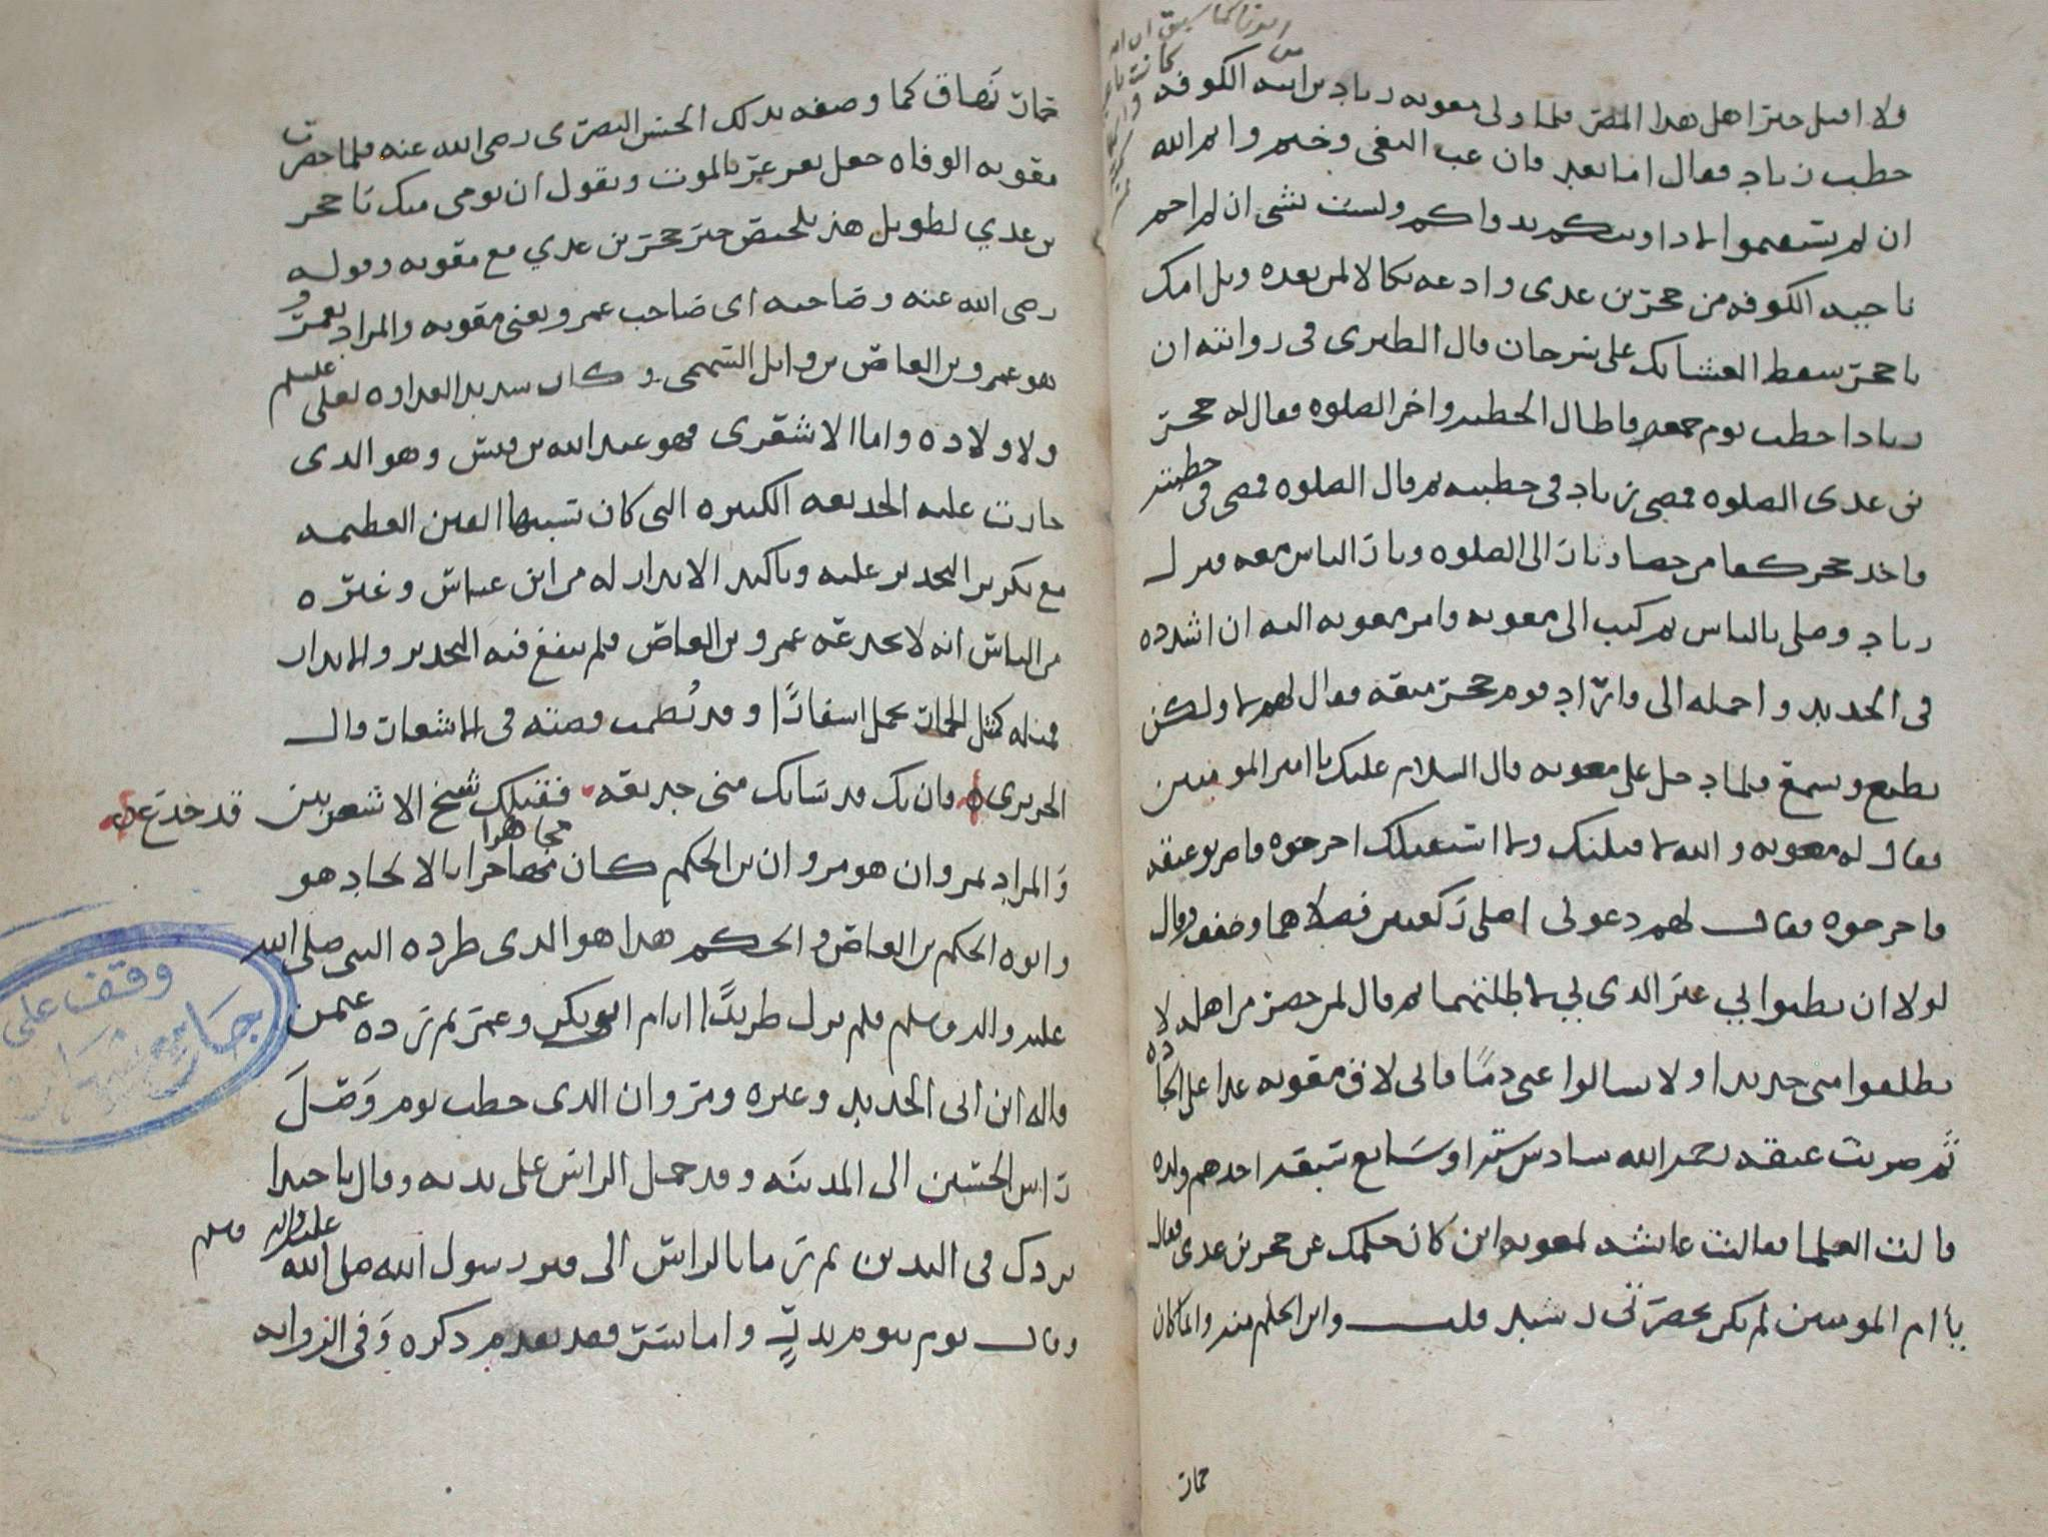 ولا اقبل خبرا اهل هذا المصر فلما ولى معويه زياد بن ابيه الكوفه
خطب زياد فقال اما بعد فان غب البغى وخيم وايم الله
ان لم تستقيموا لاداوينكم بدواكم ولست بشى ان لم احم
ناحيه الكوفه من حجر بن عدى وادعه نكالا لمن بعده ويل امك
يا حجر سقط العشابك على سرحان قال الطبرى فى روايته ان
زيادا خطب يوم جمعه فاطال الخطبه واخر الصلوه فقال له حجر
بن عدى الصلوه فمضى زياد فى خطبته ثم قال الصلوه فمضى فى خطبته
فاخذ حجر كفا من حصا وثار الى الصلوه وثار الناس معه فنزل
زياد وصلى بالناس ثم كتب الى معويه وامر معويه اليه ان اشدده
فى الحديد واحمله الى واراد قوم حجر منعه فقال لهم لا ولكن
نطيع ونسمع فلما دخل على معويه قال السلام عليك يا امير المومنين
فقال له معويه والله لا اقيلنك ولا استقيلك اخرجوه فاضربوا عنقه
فاخرجوه فقال لهم دعونى اصلى ركعتين فصلاهما وخفف وقال
لولا ان تظنوا بي غير الذى بي لاطلتهما ثم قال لمن حضر من اهله لا
تطلقوا منى حديدا ولا تسالوا عنى دما فانى لاق معويه غدا على الجاده
ثم ضربت عنقه رحمه الله سادس سته او سابع سبعه احدهم ولده
قالت العلما فقالت عايشه لمعويه اين كان حلمك عن حجر بن عدى فقال
يا ام المومنين لم يكن يحضرنى رشيد قلت واين الحلم منه وانما كان
حمار
حمار نهاق كما وصفه بذلك الحسن البصرى رضى الله عنه فلما حضرت
معويه الوفاه جعل يغرغر بالموت ويقول ان يومى منك يا حجر
بن عدي لطويل هذا تلخيص خبر حجر بن عدي مع معويه وقوله
رضى الله عنه وصاحبه اى صاحب عمرو يعنى معويه والمراد بعمرو
هو عمرو بن العاص بن وايل السهمى وكان شديد العداوه لعلى عليلم
ولاولاده واما الاشعرى فهو عبد الله بن قيس وهو الذى
جازت عليه الخديعه الكبيره التى كان تسببها الفتن العظيمه
مع تكرير التحذير عليه وتاكيد الانذار له من ابن عباس وغيره
من الناس انه لا يخدعه عمرو بن العاص فلم ينفع فيه التحذير والانذار
فمثله كمثل الحمار يحمل اسفارا وقد نظمت قصته فى الاشعار قال
الحريرى فان يك قد ساك منى خديعه فقبلك شيخ الاشعريين قد خدع
والمراد بمروان هو مروان بن الحكم كان مجاهرا بالالحاد هو
وابوه الحكم بن العاص والحكم هذا هو الذى طرده النبى صلى الله
عليه واله وسلم فلم يزل طريدا ايام ابى بكر وعمر ثم رده عثمن
قاله ابن ابى الحديد وغيره ومروان الذى خطب يوم وصل
راس الحسين الى المدينه وقد حمل الراس على يديه وقال يا حبذا
بردك فى اليدين ثم رما بالراس الى قبر رسول الله صلى الله عليه واله وسلم
وقال يوم بيوم بدر واما بسر فقد تقدم ذكره وفى الزوايد
وقف على
جامع شهاره